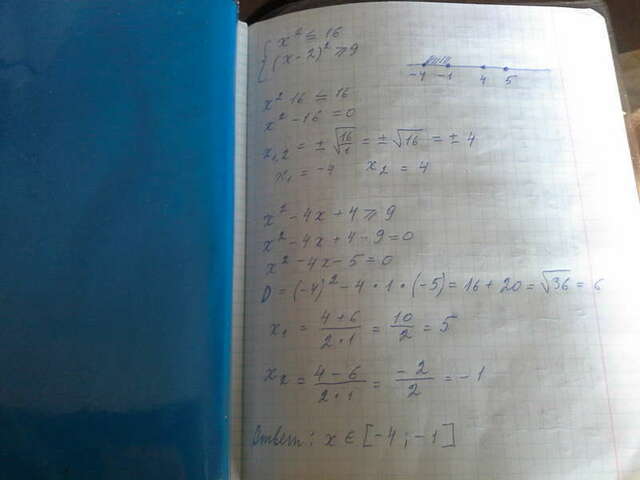 { x² ≤ 16
(x-2)² ≥ 9
-4 -1 4 5
x² 16 ≤ 16
x² - 16 = 0
x₁,₂ = ± √16/1 = ± √16 = ± 4
x₁ = -4 x₂ = 4
x² - 4x + 4 ≥ 9
x² - 4x + 4 - 9 = 0
x² - 4x - 5 = 0
D = (-4)² - 4 · 1 · (-5) = 16 + 20 = √36 = 6
x₁ = 4+6/2·1 = 10/2 = 5
x₂ = 4-6/2·1 = -2/2 = -1
Ответ: x ∈ [-4; -1]